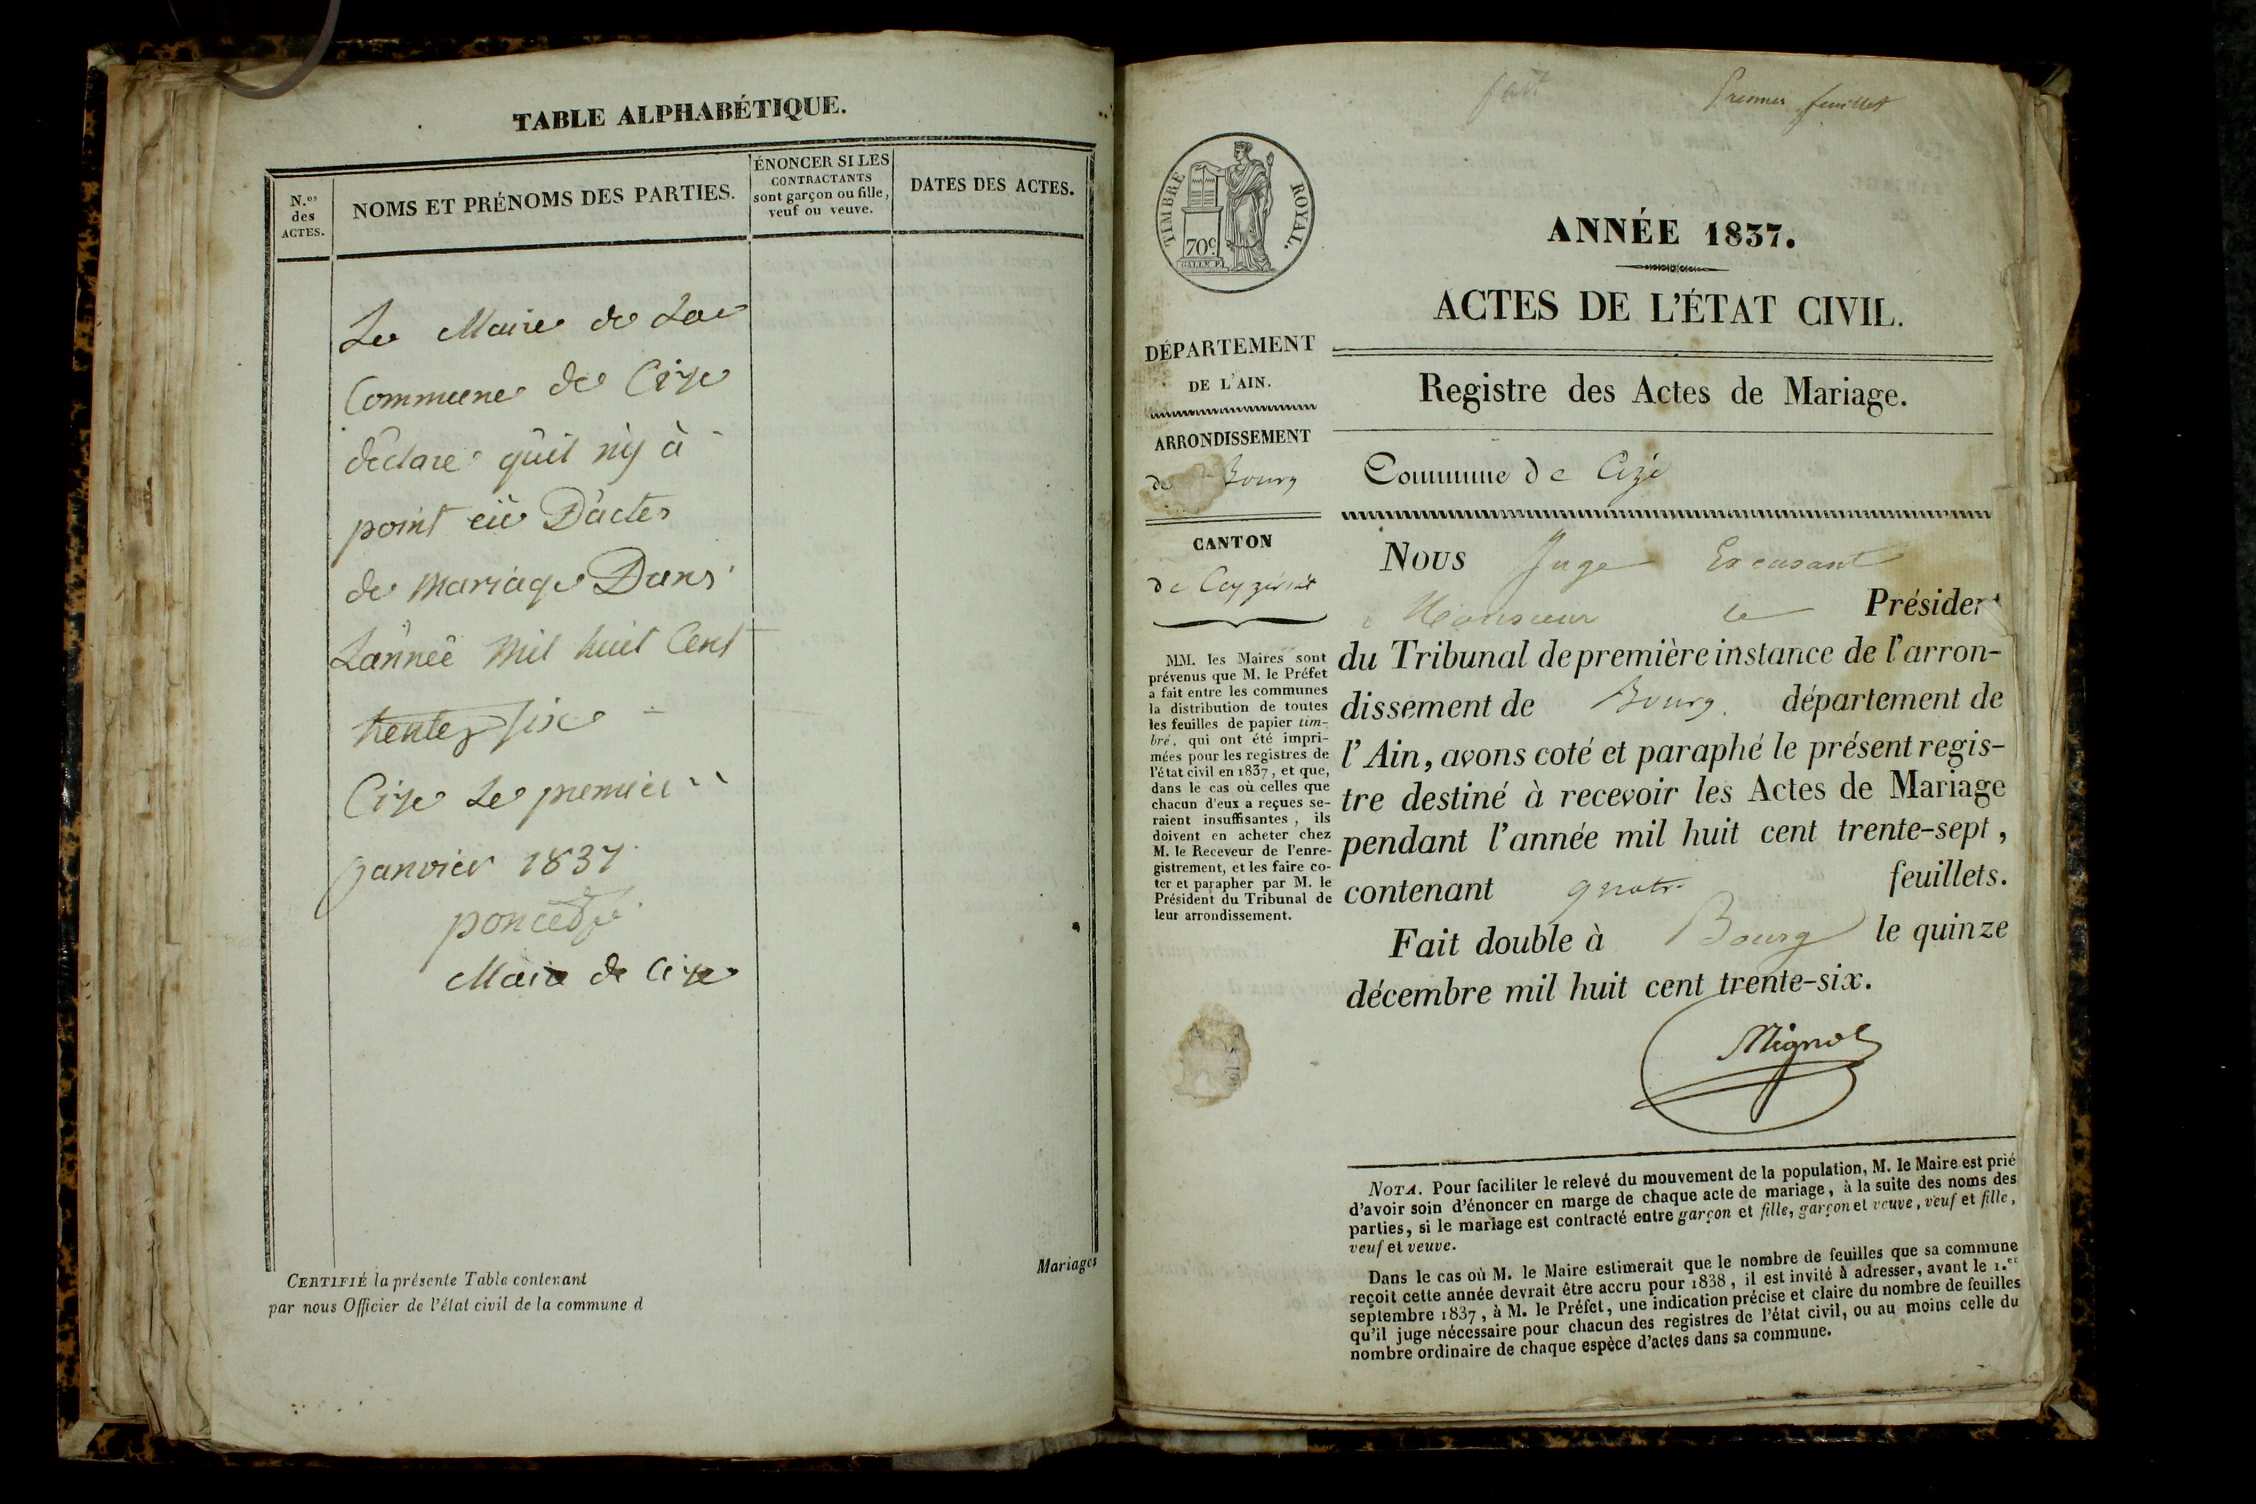 TABLE ALPHABÉTIQUE.
N.os
des
ACTES.
NOMS ET PRÉNOMS DES PARTIES.
ÉNONCER SI LES
CONTRACTANTS
sont garçon ou fille,
veuf ou veuve.
DATES DES ACTES.
Le Maire de La
Commune de Cize
déclare quil niy à
point eü D'actes
de mariage Dans
L'année mil huit Cent
trente six
Cize Le premier
janvier 1837
poncet
Maire de Cize
CERTIFIÉ la présente Table contenant
par nous Officier de l'état civil de la commune d
Mariages
fait
Premier feuillet
TIMBRE ROYAL.
70c
ANNÉE 1837.
ACTES DE L'ÉTAT CIVIL.
Registre des Actes de Mariage.
DÉPARTEMENT
DE L'AIN.
ARRONDISSEMENT
de Bourg
CANTON
de Ceyzériat
MM. les Maires sont
prévenus que M. le Préfet
a fait entre les communes
la distribution de toutes
les feuilles de papier tim-
bré, qui ont été impri-
mées pour les registres de
l'état civil en 1837, et que,
dans le cas où celles que
chacun d'eux a reçues se-
raient insuffisantes, ils
doivent en acheter chez
M. le Receveur de l'enre-
gistrement, et les faire co-
ter et parapher par M. le
Président du Tribunal de
leur arrondissement.
Commune de Cize
Nous Juge Excusant
Monsieur le Président
du Tribunal de première instance de l'arron-
dissement de Bourg. département de
l'Ain, avons coté et paraphé le présent regis-
tre destiné à recevoir les Actes de Mariage
pendant l'année mil huit cent trente-sept,
contenant quatre feuillets.
Fait double à Bourg le quinze
décembre mil huit cent trente-six.
Mignot
NOTA. Pour faciliter le relevé du mouvement de la population, M. le Maire est prié
d'avoir soin d'énoncer en marge de chaque acte de mariage, à la suite des noms des
parties, si le mariage est contracté entre garçon et fille, garçon et veuve, veuf et fille,
veuf et veuve.
Dans le cas où M. le Maire estimerait que le nombre de feuilles que sa commune
reçoit cette année devrait être accru pour 1838, il est invité à adresser, avant le 1.er
septembre 1837, à M. le Préfet, une indication précise et claire du nombre de feuilles
qu'il juge nécessaire pour chacun des registres de l'état civil, ou au moins celle du
nombre ordinaire de chaque espèce d'actes dans sa commune.